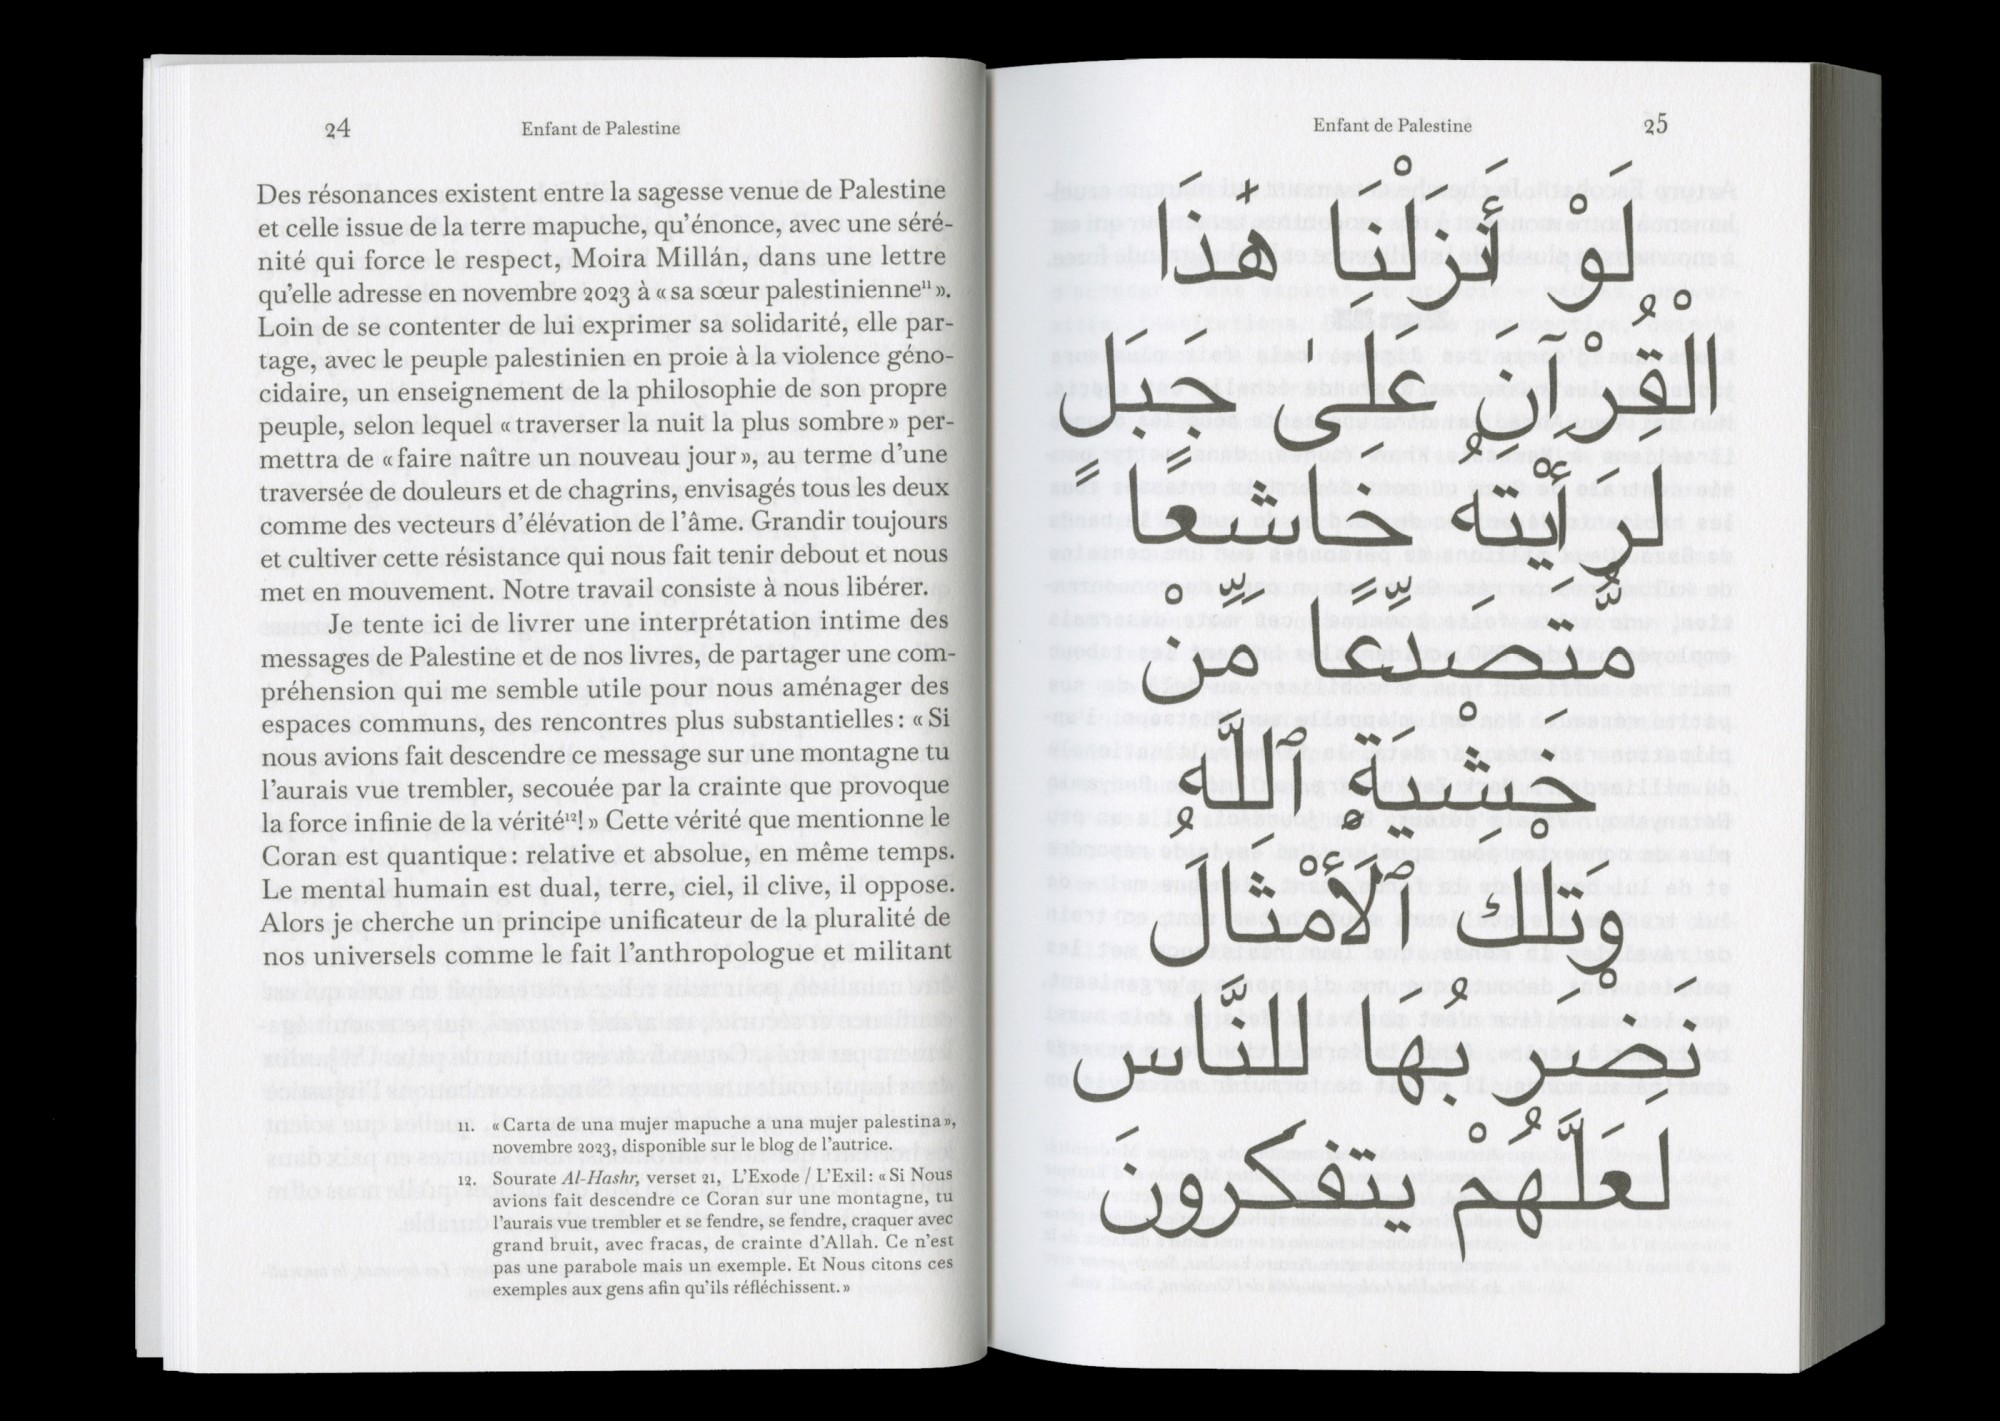 24
Enfant de Palestine
Des résonances existent entre la sagesse venue de Palestine
et celle issue de la terre mapuche, qu’énonce, avec une séré-
nité qui force le respect, Moira Millán, dans une lettre
qu’elle adresse en novembre 2023 à « sa sœur palestinienne¹¹ ».
Loin de se contenter de lui exprimer sa solidarité, elle par-
tage, avec le peuple palestinien en proie à la violence géno-
cidaire, un enseignement de la philosophie de son propre
peuple, selon lequel « traverser la nuit la plus sombre » per-
mettra de « faire naître un nouveau jour », au terme d’une
traversée de douleurs et de chagrins, envisagés tous les deux
comme des vecteurs d’élévation de l’âme. Grandir toujours
et cultiver cette résistance qui nous fait tenir debout et nous
met en mouvement. Notre travail consiste à nous libérer.
Je tente ici de livrer une interprétation intime des
messages de Palestine et de nos livres, de partager une com-
préhension qui me semble utile pour nous aménager des
espaces communs, des rencontres plus substantielles : « Si
nous avions fait descendre ce message sur une montagne tu
l’aurais vue trembler, secouée par la crainte que provoque
la force infinie de la vérité¹² ! » Cette vérité que mentionne le
Coran est quantique : relative et absolue, en même temps.
Le mental humain est dual, terre, ciel, il clive, il oppose.
Alors je cherche un principe unificateur de la pluralité de
nos universels comme le fait l’anthropologue et militant
11. « Carta de una mujer mapuche a una mujer palestina »,
novembre 2023, disponible sur le blog de l’autrice.
12. Sourate Al-Hashr, verset 21, L’Exode / L’Exil : « Si Nous
avions fait descendre ce Coran sur une montagne, tu
l’aurais vue trembler et se fendre, se fendre, craquer avec
grand bruit, avec fracas, de crainte d’Allah. Ce n’est
pas une parabole mais un exemple. Et Nous citons ces
exemples aux gens afin qu’ils réfléchissent. »
Enfant de Palestine
25
لَوْ أَنزَلْنَا هَٰذَا
الْقُرْآنَ عَلَىٰ جَبَلٍ
لَّرَأَيْتَهُ خَاشِعًا
مُّتَصَدِّعًا مِّنْ
خَشْيَةِ ٱللَّهِ
وَتِلْكَ ٱلْأَمْثَالُ
نَضْرِبُهَا لِلنَّاسِ
لَعَلَّهُمْ يَتَفَكَّرُونَ